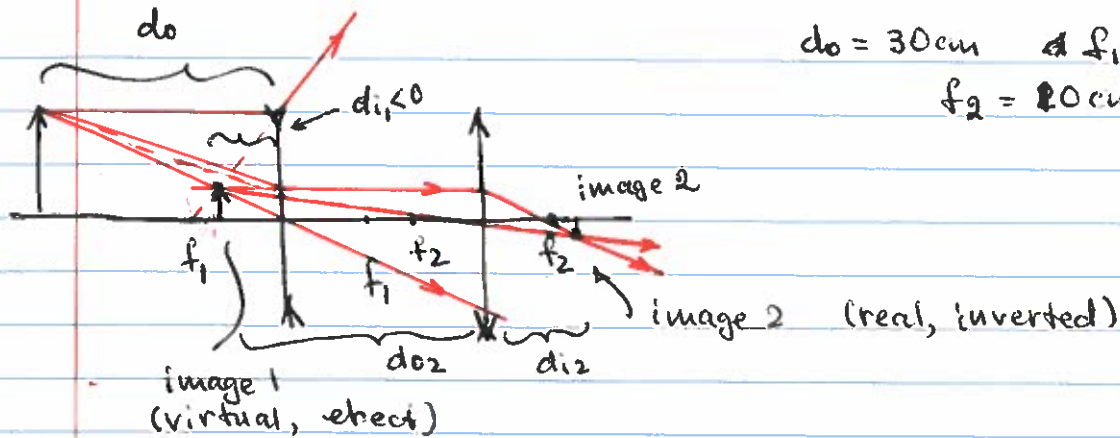 do
do = 30cm f₁
f₂ = 10 cm
di₁<0
image 2
f₁
f₂
f₁
f₂
image 2 (real, inverted)
do2
di2
image 1
(virtual, erect)